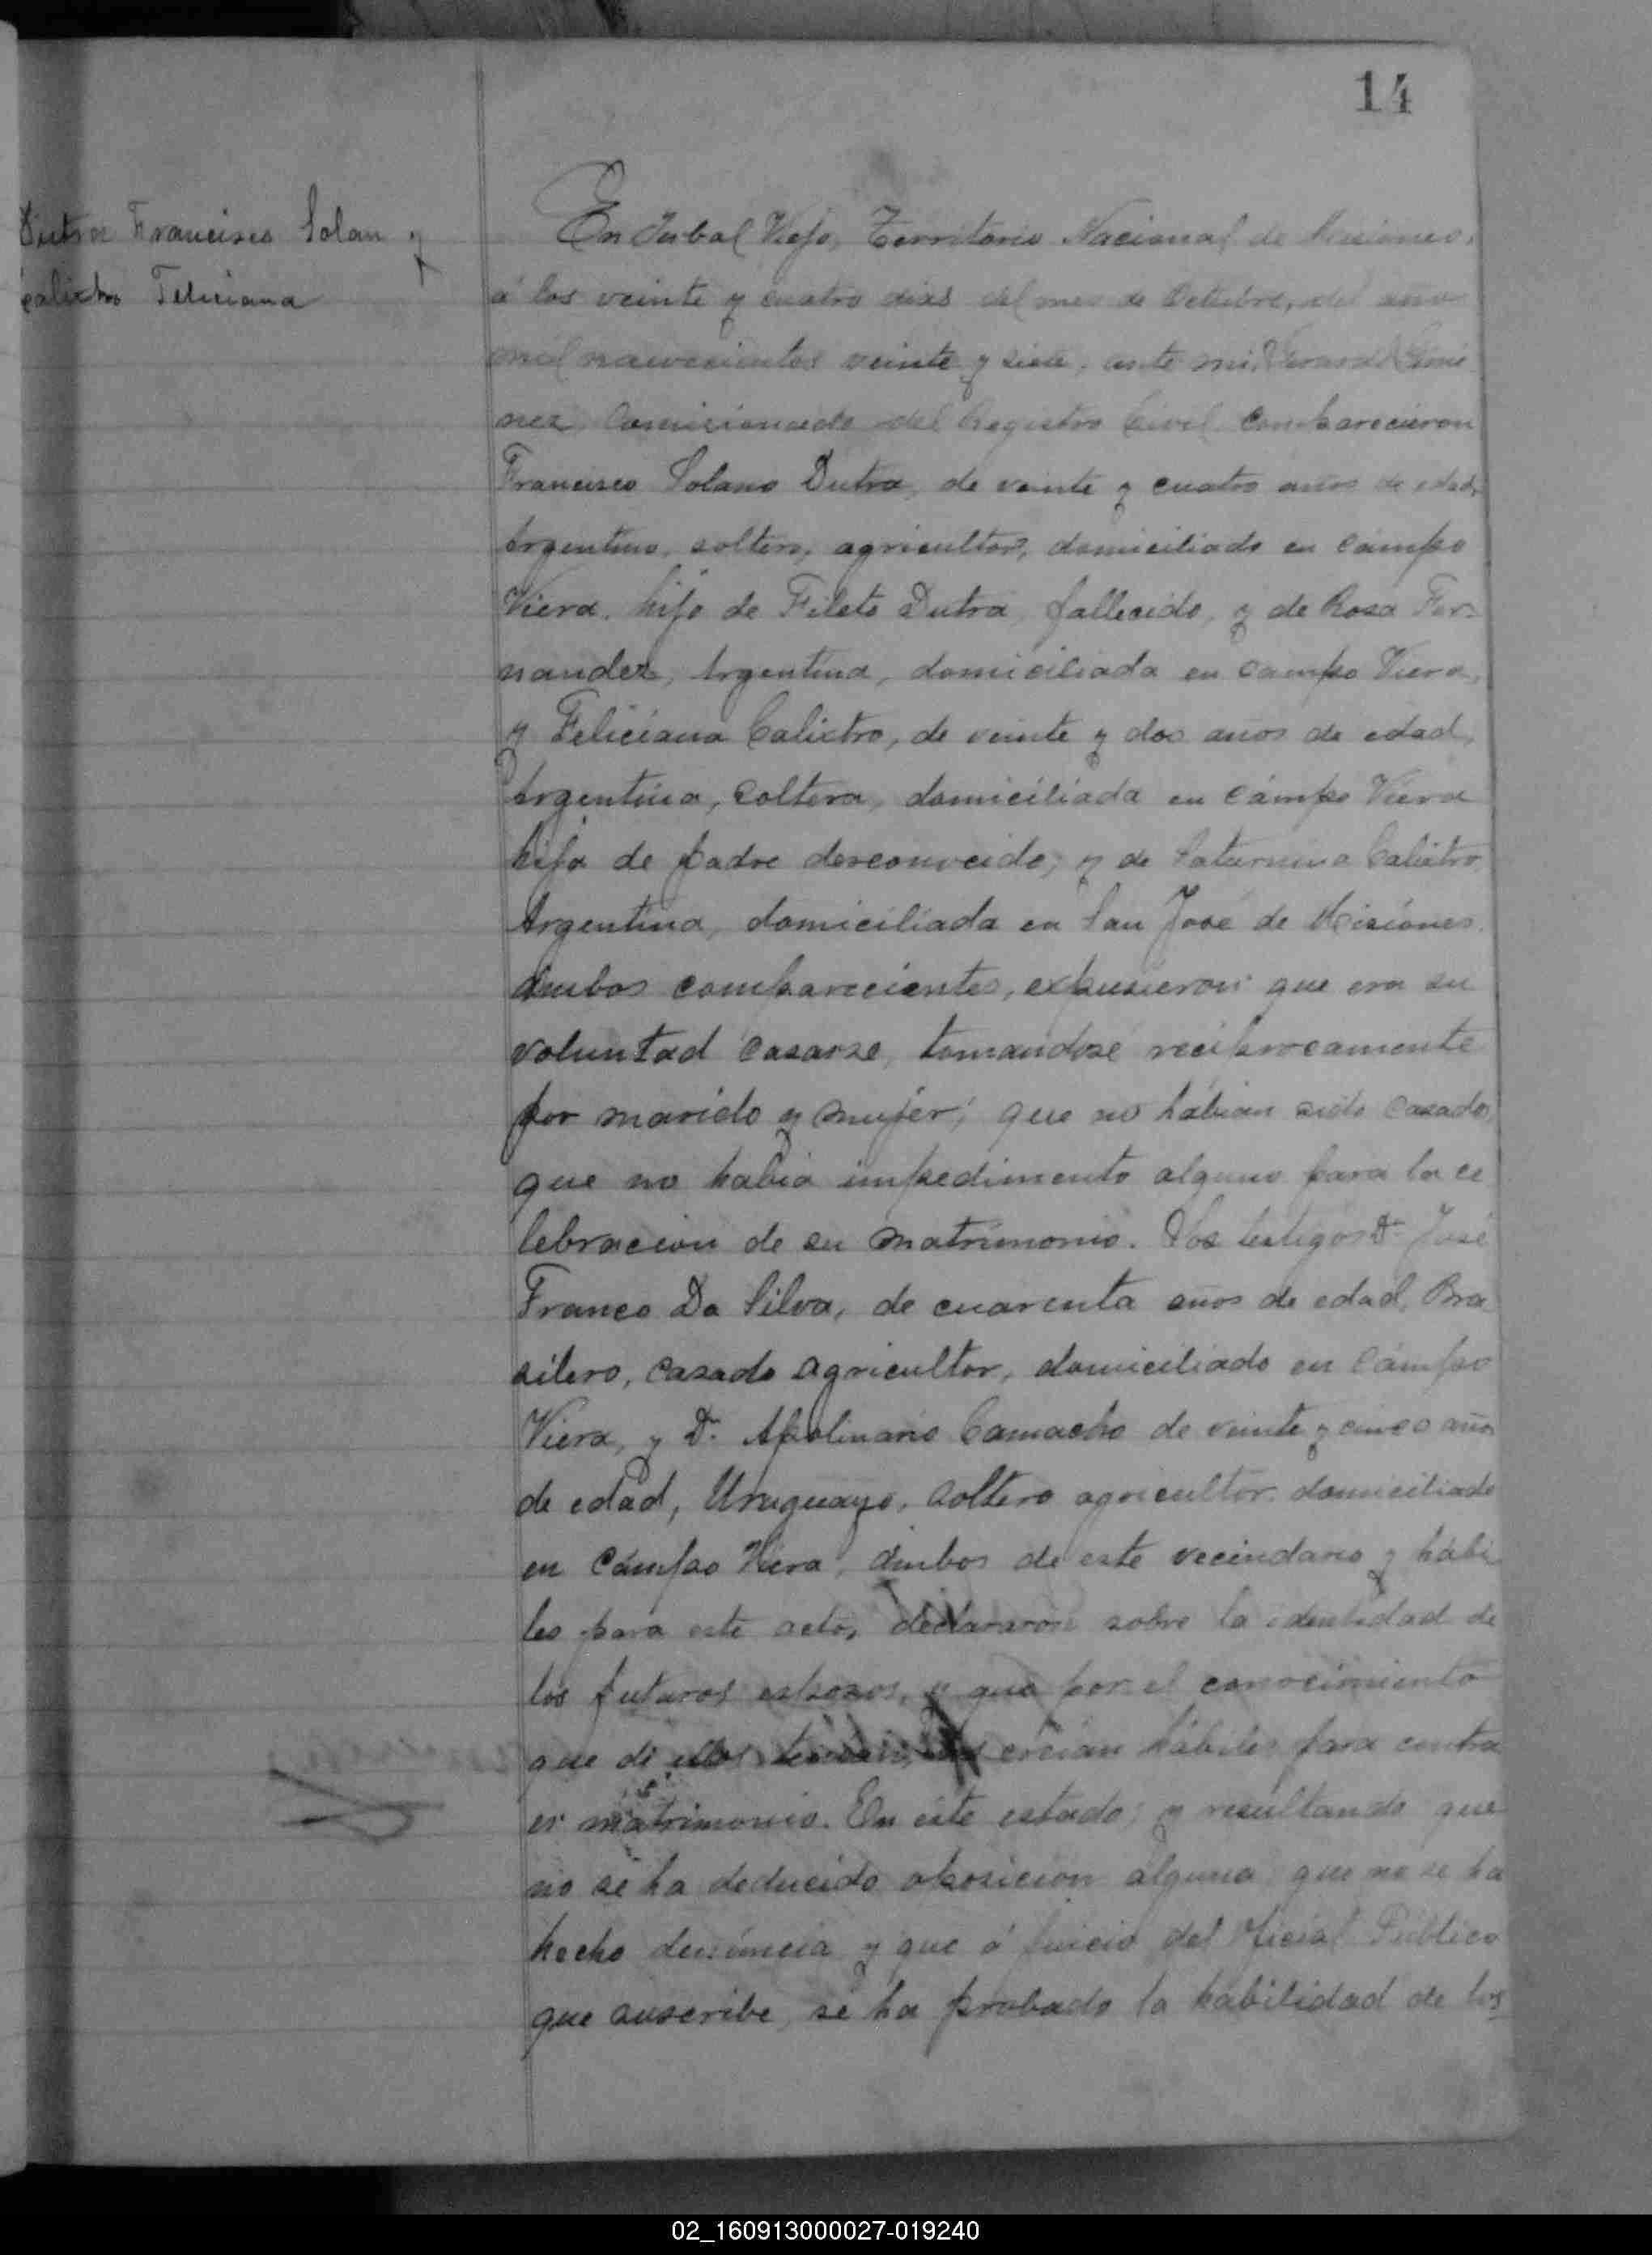 14
Dutra Francisco Solan y
Calixtro Feliciana
En Yerbal Viejo, Territorio Nacional de Misiones,
á los veinte y cuatro dias del mes de Octubre, del año
mil nuevecientos veinte y siete, ante mi, Gimé
nez, Comicionado del Registro Civil comparecieron
Francisco Solano Dutra, de veinte y cuatro años de edad,
Argentino, soltero, agricultor, domiciliado en Cámpo
Viera, hijo de Fileto Dutra, fallecido, y de Rosa Fer-
nandez, Argentina, domiciliada en Campo Viera,
y Feliciana Calixtro, de veinte y dos años de edad,
Argentina, soltera, domiciliada en Cámpo Viera
hija de padre desconocido; y de Saturnina Calixtro,
Argentina, domiciliada en San José de Misiones.
ámbos comparecientes, expusieron: que era su
voluntad casarse, tomandose reciprocamente
por marido y mujer; que no habian sido casados,
que no habia impedimento alguno para la ce
lebracion de su matrimonio. Los testigos Dn José
Franco Da Silva, de cuarenta años de edad, Bra
silero, casado agricultor, domiciliado en Cámpo
Viera, y Dn Apolinario Camacho de veinte y cinco años
de edad, Uruguayo, soltero agricultor domiciliado
en Cámpo Viera, ámbos de este vecindario y hábi
les para este acto, declararon sobre la identidad de
los futuros esposos, y que por el conocimiento
que de ellos tenian, los creian hábiles para contra
er matrimonio. En este estado; y resultando que
no se ha deducido oposicion alguna que no se ha
hecho denúncia y que á juicio del Oficial Público
que suscribe, se ha probado la habilidad de los
02_160913000027-019240